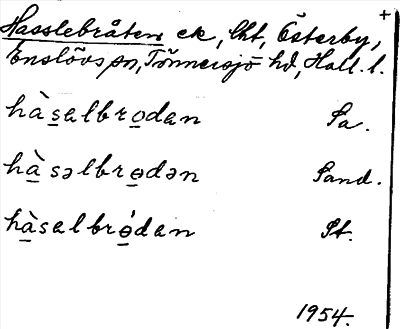 Hasslebråten ek, lht, Österby, +
Enslövs sn, Tönnersjö hd, Hall. l.
hàs̲albro̲dan Sa.
hà̲səlbrɵ̲dən Sand.
hà̲salbrɵ̲́dan St.
1954.